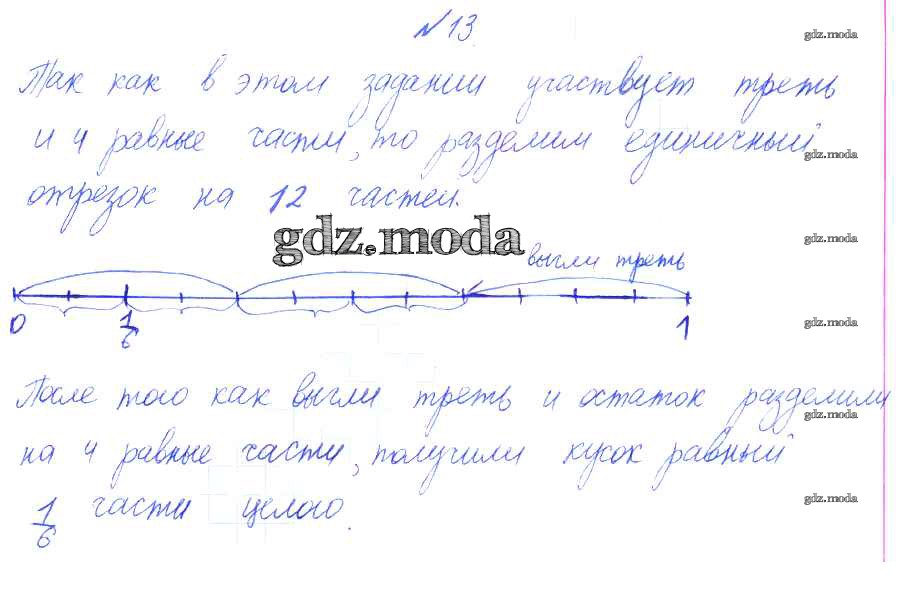 № 13
gdz.moda
Так как в этом задании участвует треть
и 4 равные части, то разделим единичный
gdz.moda
отрезок на 12 частей.
gdz.moda
gdz.moda
выгли треть
0 1/6 1
gdz.moda
После того как выгли треть и остаток разделили
gdz.moda
на 4 равные части, получили кусок равный
1/6 части целого.
gdz.moda